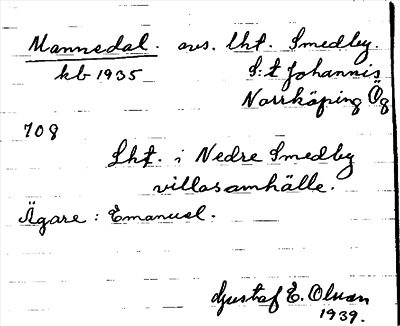 Mannedal. avs. lht. Smedby.
kb 1935 S:t Johannis
Norrköping Ög
708
Lht. i Nedre Smedby
villasamhälle.
Ägare: Emanuel.
Gustaf E. Olson
1939.